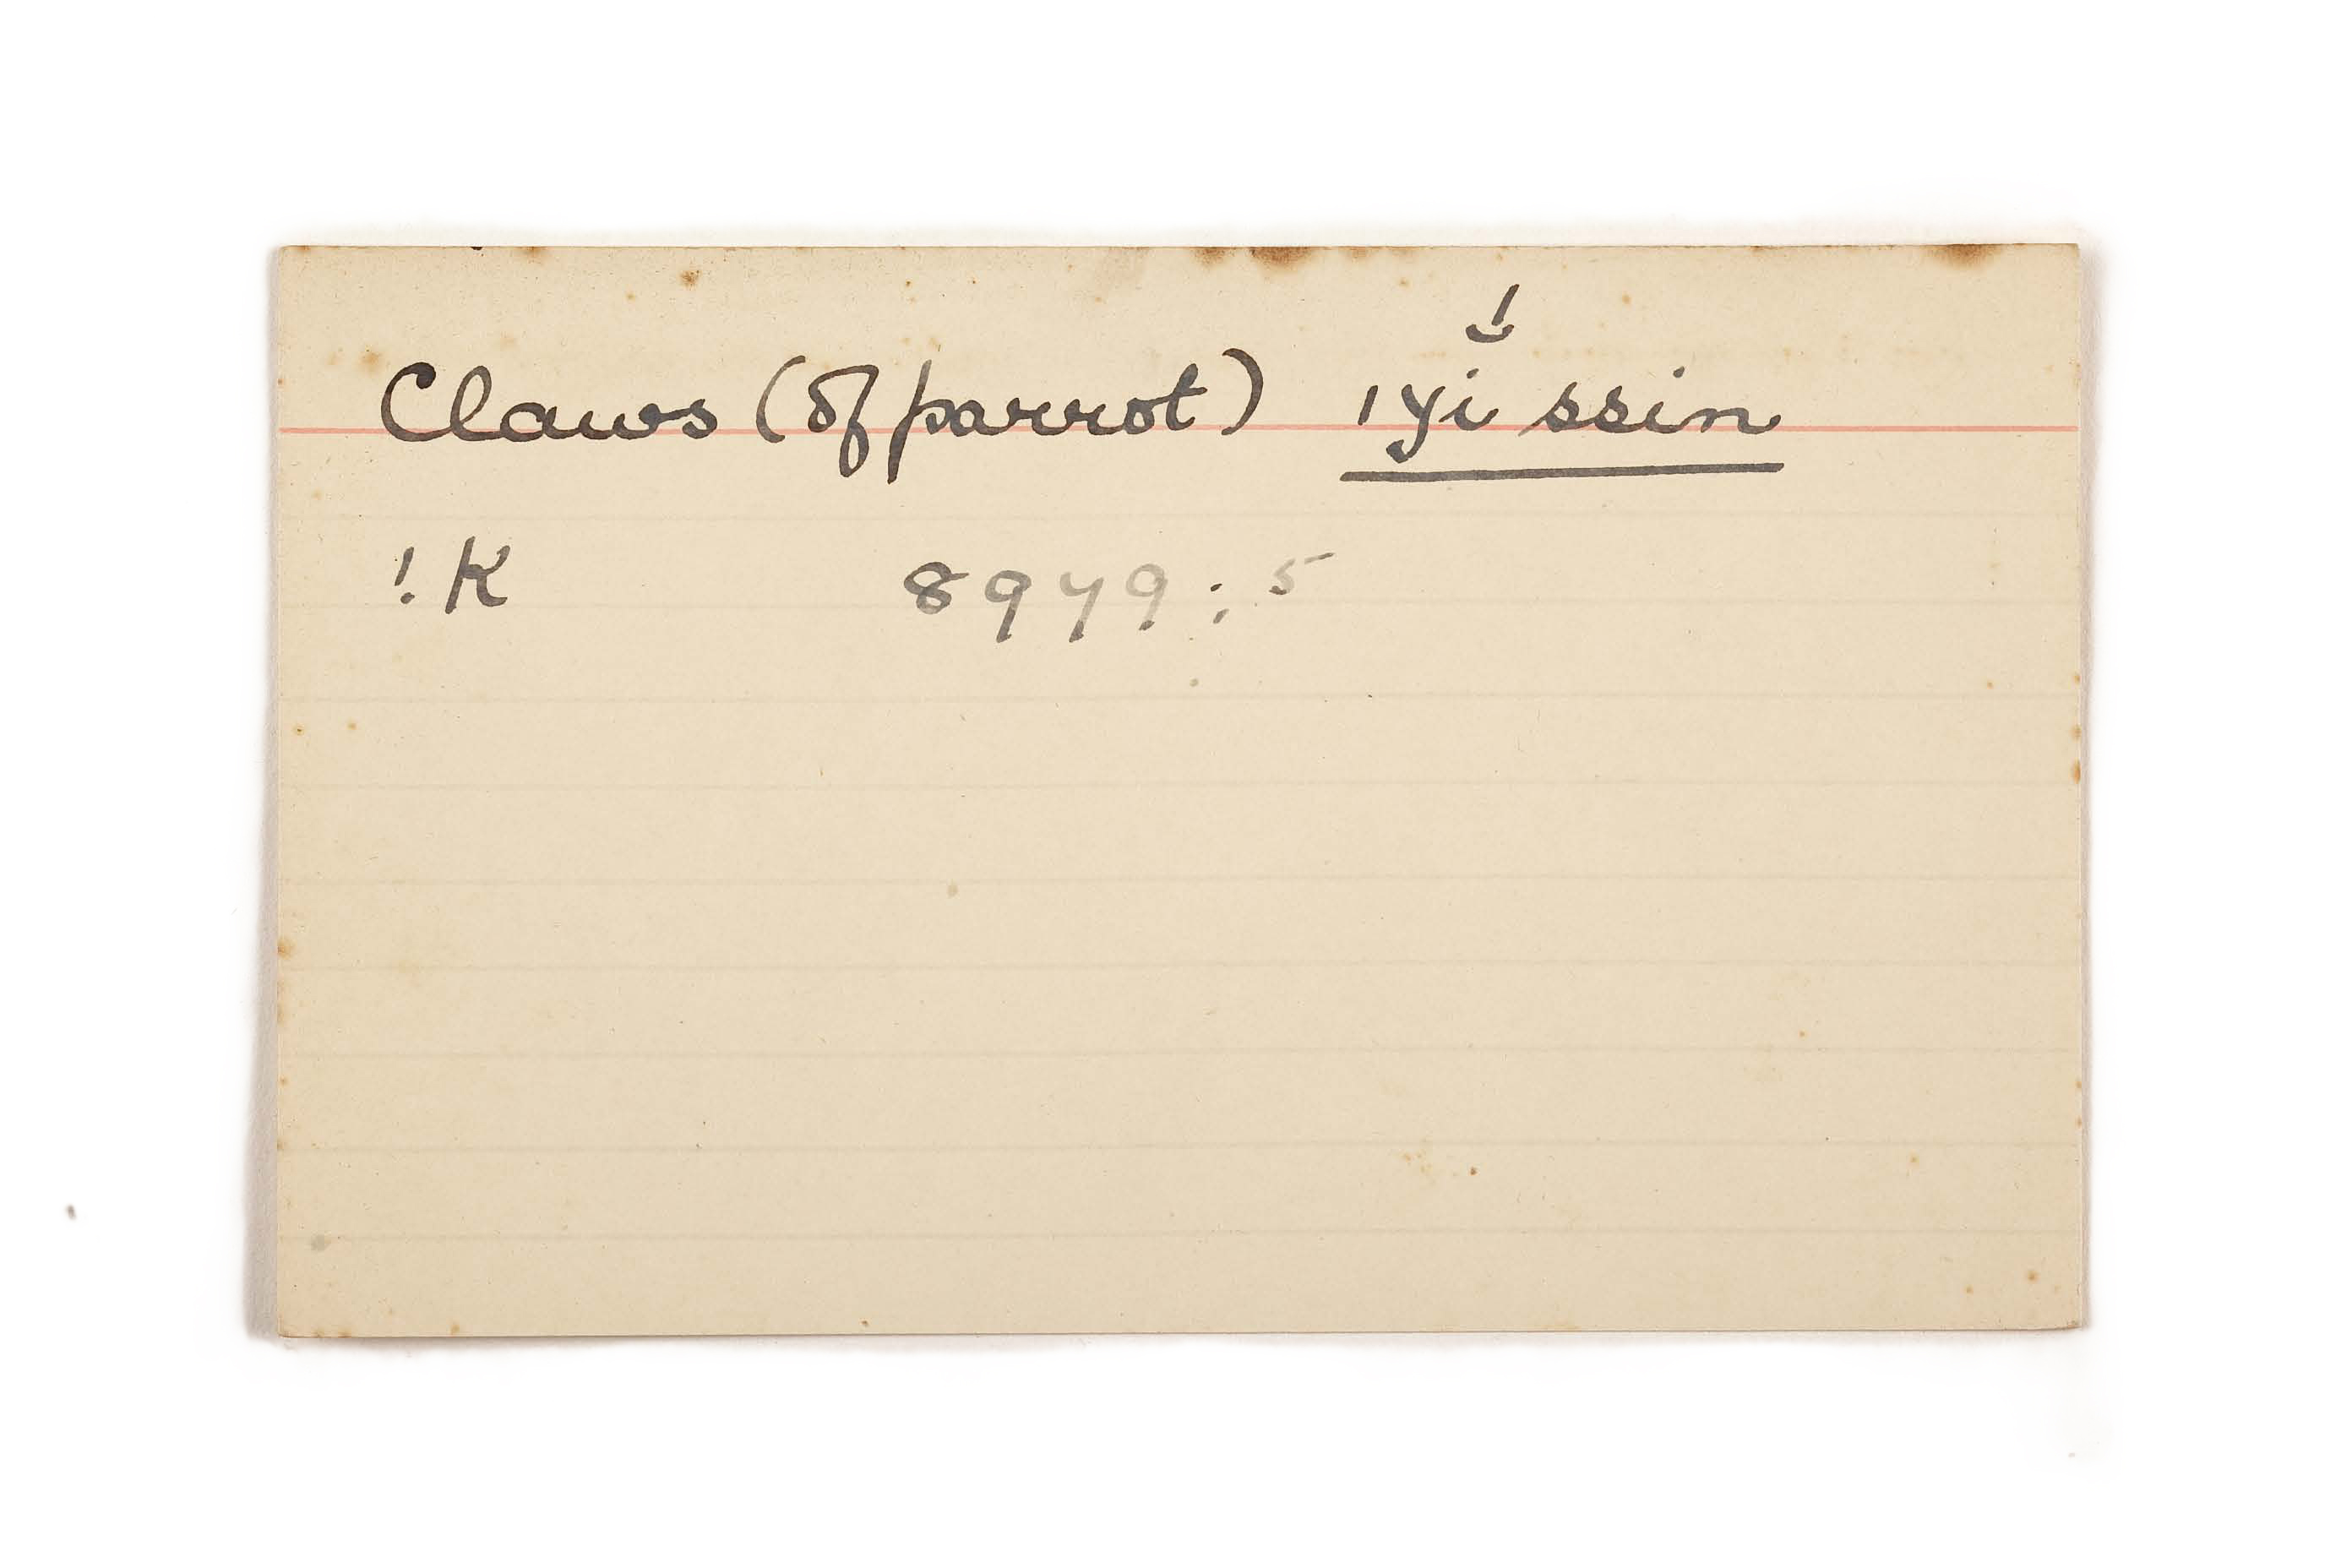 Claws (of parrot) ıyĭ́ ssin
!K 8979:5